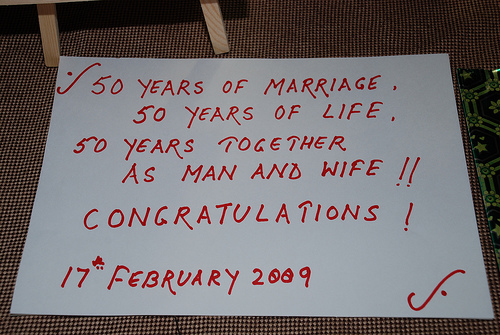 50 YEARS OF MARRIAGE,
50 YEARS OF LIFE,
50 YEARS TOGETHER
AS MAN AND WIFE !!
CONGRATULATIONS !
17th FEBRUARY 2009